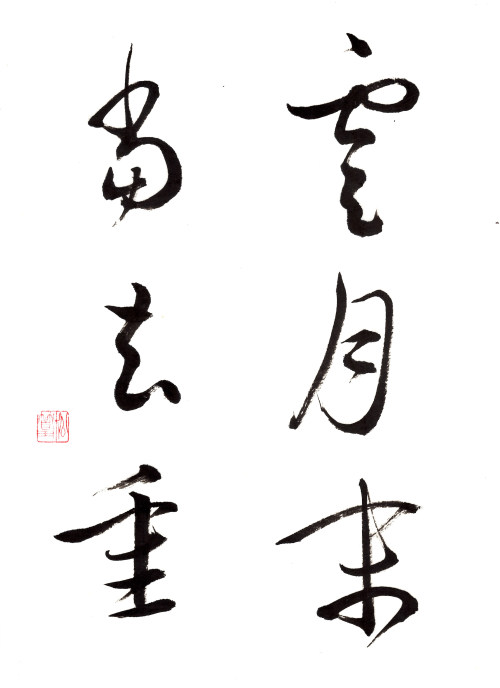 雲月来
當去重